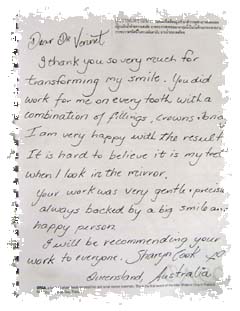 Dear Dr Vennet
I thank you so very much for
transforming my smile. You did
work for me on every tooth with a
combination of fillings, crowns
I am very happy with the result
It is hard to believe it is my
when I look in the mirror.
Your work was very gentle + precise
always backed by a big smile
happy person
I will be recommending your
work to everyone. Sharyn Cook xo
Queensland, Australia